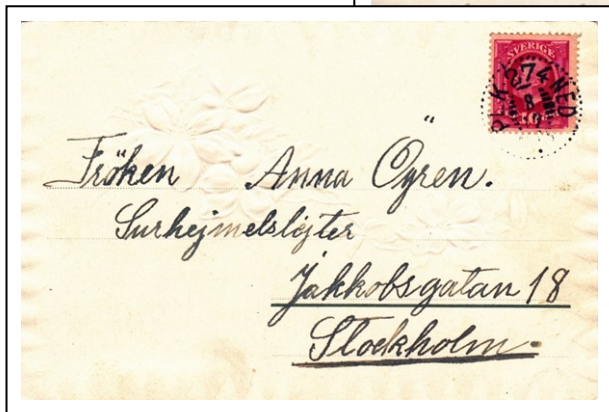 SVERIGE
PKXP 274 NED
8
10
Fröken Anna Öğren.
Surhejmelslejter
Jakkobsgatan 18
Stockholm.